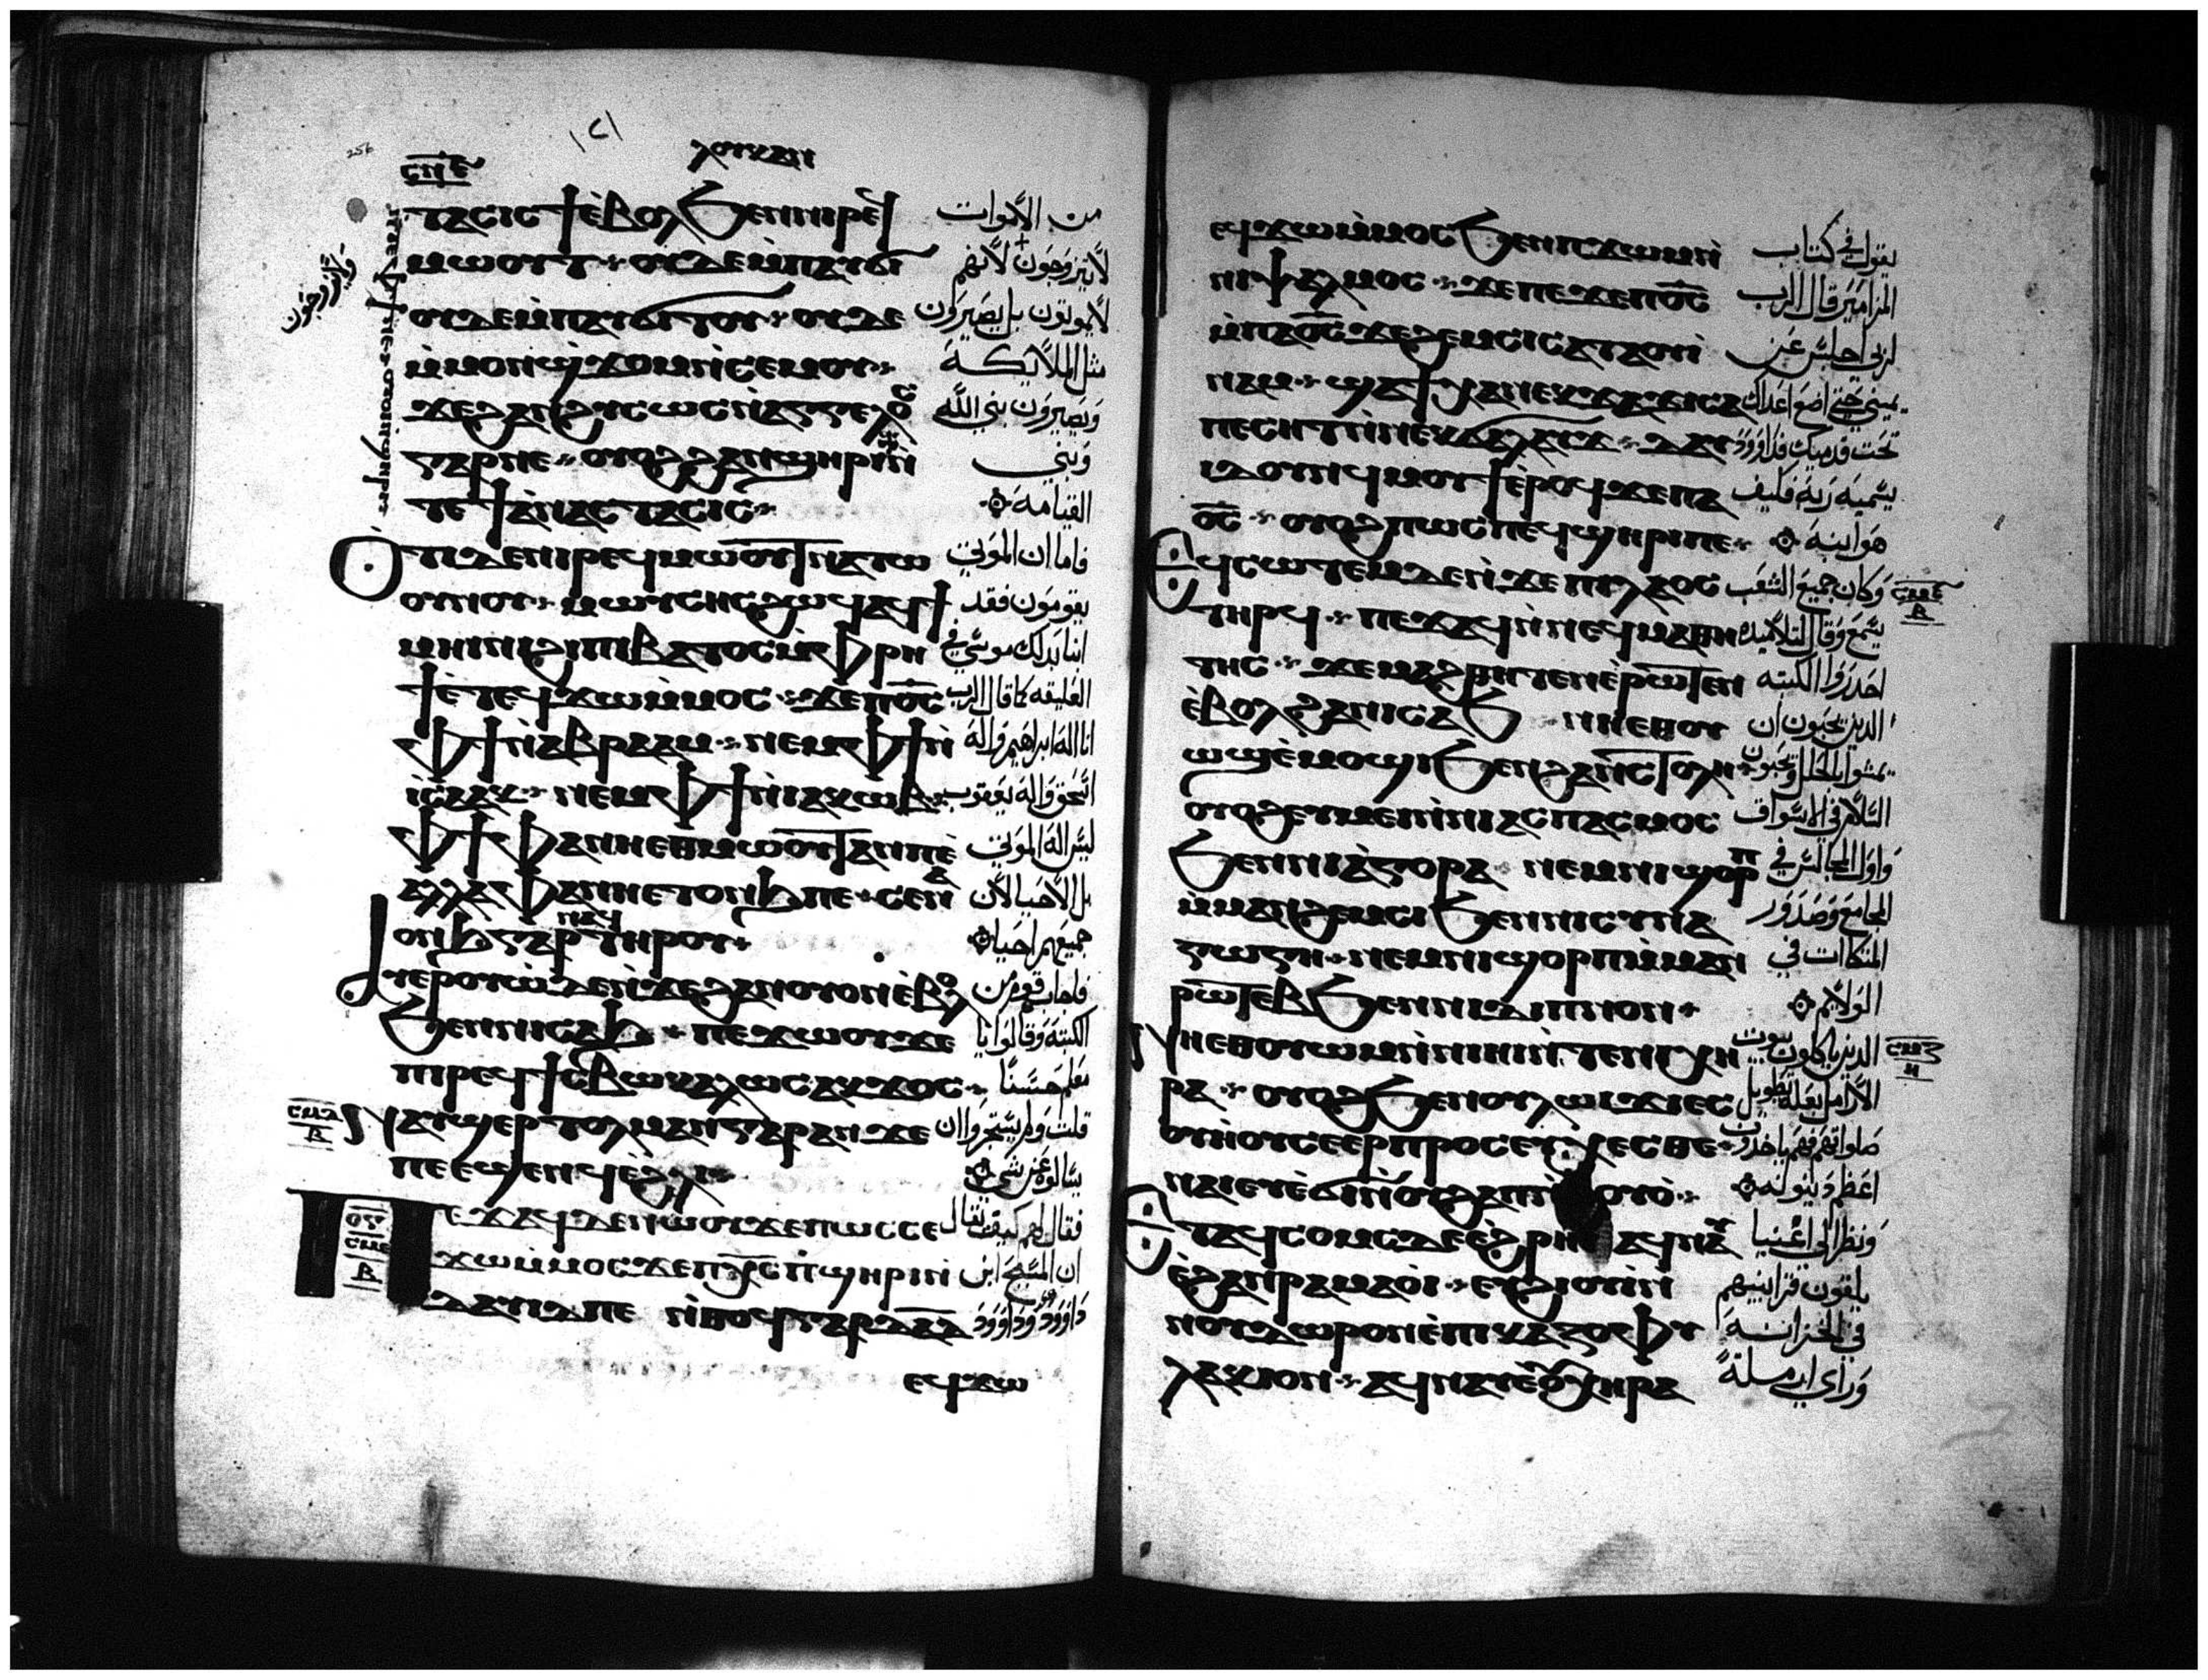 ⲗⲟⲩⲕⲁⲛ
256
ⲥⲛⲉ
ⲧⲁⲥⲓⲥ ϯⲉⲃⲟⲗ ϧⲉⲛⲛⲓⲣⲉϥ من الاموات
ⲙⲱⲟⲩⲧ ⲟⲩⲇⲉ ⲙⲡⲁⲩϭⲓ لا يتزوجون لانهم
ⲟⲩⲇⲉ ⲙⲡⲁⲩϭⲓⲧⲟⲩ ⲟⲩⲇⲉ لا يموتون بل يصيرون
ⲙⲙⲟⲛϣϫⲟⲙ ⲛⲥⲉⲙⲟⲩ مثل الملايكة
ϫⲉ ϩⲁⲛϩⲩⲥⲱⲥ ⲛⲁⲅⲅⲉⲗⲟⲥ ويصيرون بني الله
ⲅⲁⲣⲛⲉ ⲟⲩⲟϩ ϩⲁⲛϣⲏⲣⲓ وبني
ⲧⲉ ϯⲁⲛⲁⲥⲧⲁⲥⲓⲥ القيامة
ⲟⲧⲓⲇⲉ ⲛⲓⲣⲉϥⲙⲱⲟⲩⲧ ⲛⲁⲧⲱ فاما ان الموتي
ⲟⲩⲛⲟⲩ ⲙⲱⲩⲥⲏⲥ ϩⲱϥ ⲁϥϯ يقومون فقد
ⲙⲏⲓⲛⲓ ϩⲓ ⲡⲓⲃⲁⲧⲟⲥ ⲙⲫⲣⲏ انبا بذلك موسي في
ϯ ⲉⲧⲉϥϫⲱⲙⲙⲟⲥ ϫⲉ ⲡⲟⲥ العليقه كما قال الرب
ⲫϯ ⲛⲁⲃⲣⲁⲁⲙ ⲛⲉⲙ ⲫϯ ⲛ انا اله ابراهيم واله
ⲓⲥⲁⲁⲕ ⲛⲉⲙ ⲫϯ ⲛⲓⲁⲕⲱⲃ اسحق واله يعقوب
ⲫϯ ⲫⲁⲛⲏⲉⲑⲙⲱⲟⲩⲧ ⲁⲛⲡⲉ ليس اله الموتي
ⲁⲗⲗⲁ ⲫⲁⲛⲏⲉⲧⲟⲛϧ ⲡⲉ ⲥⲉⲛⲁ بل الاحيا لان
ⲟⲛϧ ⲅⲁⲣ ⲛⲁϥ ⲧⲏⲣⲟⲩ جميعهم احيا
ⲁⲩⲉⲣⲟⲩⲱ ⲇⲉ ⲛϫⲉ ϩⲁⲛⲟⲩⲟⲛ ⲉⲃⲟⲗ فاجاب قوم من
ϧⲉⲛⲛⲓⲥⲁϧ ⲡⲉϫⲱⲟⲩ ϫⲉ الكتبة وقالوا يا
ⲡⲓⲣⲉϥϯⲥⲃⲱ ⲕⲁⲗⲱⲥ ⲁⲕϫⲟⲥ معلم حسنا
ⲥⲙⲇ ⲃ
ⲛⲁⲩϣⲉⲣⲧⲟⲗⲙⲁⲛ ⲅⲁⲣ ⲁⲛ ϫⲉ قلت ولم يستجروا ان
ⲡⲉ ⲉϣⲉⲛϥ ⲉϩⲗⲓ يسالوه عن شي
ⲟⲍ ⲥⲙⲉ ⲃ
ⲡⲉϫⲁϥ ⲇⲉ ⲛⲱⲟⲩ ϫⲉ ⲡⲱⲥ ⲥⲉ فقال لهم كيف يقال
ϫⲱⲙⲙⲟⲥ ϫⲉ ⲡⲭⲥ ⲡϣⲏⲣⲓ ⲛ ان المسيح ابن
ⲇⲁⲩⲓⲇ ⲡⲉ ⲛⲑⲟϥ ⲅⲁⲣ ⲇⲁⲇ داوود وداوود
ⲉϥϫⲱ
ⲉϥϫⲱⲙⲙⲟⲥ ϧⲉⲛ ⲡϫⲱⲙ ⲛ يقول في كتاب
ⲛⲓⲯⲁⲗⲙⲟⲥ ϫⲉ ⲡⲉϫⲉ ⲡⲟⲥ المزامير قال الرب
ⲙⲡⲁⲟⲥ ϫⲉ ϩⲉⲙⲥⲓ ⲥⲁⲧⲁⲟⲩⲓ لربي اجلس عن
ⲛⲁⲙ ϣⲁϯⲭⲁ ⲛⲉⲕϫⲁϫⲓ ⲥⲁ يميني حتى اضع اعداك
ⲡⲉⲥⲏⲧ ⲛⲛⲉⲕϭⲁⲗⲁⲩϫ ⲇⲁⲩ تحت قدميك فداوود
ⲓⲇ ⲟⲩⲛ ϥⲙⲟⲩϯ ⲉⲣⲟϥ ϫⲉ ⲡⲁ يسميه ربه فكيف
ⲟⲥ ⲟⲩⲟϩ ⲡⲱⲥ ⲡⲉϥϣⲏⲣⲓ ⲡⲉ هو ابنه
ⲉϥⲥⲱⲧⲉⲙ ⲇⲉ ⲛϫⲉ ⲡⲓⲗⲁⲟⲥ وكان جميع الشعب ⲥⲙⲋ ⲃ
ⲧⲏⲣϥ ⲡⲉϫⲁϥ ⲛⲛⲉϥⲙⲁⲑⲏ يسمع وقال لتلاميذه
ⲧⲏⲥ ϫⲉ ⲙⲁϩⲑⲏⲧⲉⲛ ⲉⲣⲱⲧⲉⲛ احذروا الكتبه
ⲉⲃⲟⲗ ϩⲁ ⲛⲓⲥⲁϧ ⲛⲏⲉⲑⲟⲩ الذين يحبون ان
ⲱϣ ⲉⲙⲟϣⲓ ϧⲉⲛ ϩⲁⲛⲥⲧⲟⲗⲏ يمشوا بالحلل ويحبون
ⲟⲩⲟϩ ⲉⲩⲙⲉⲓ ⲛⲛⲓⲁⲥⲡⲁⲥⲙⲟⲥ السلام في الاسواق
ϧⲉⲛⲛⲓⲁⲅⲟⲣⲁ ⲛⲉⲙ ⲛⲓϣⲟⲣⲡ واول المجالس في
ⲙⲙⲁⲛϩⲉⲙⲥⲓ ϧⲉⲛⲛⲓⲥⲩⲛⲁ المجامع وصدور
ⲅⲱⲅⲏ ⲛⲉⲙ ⲛⲓϣⲟⲣⲡ ⲙⲙⲁⲛ المتكاات في
ⲣⲱⲧⲉⲃ ϧⲉⲛⲛⲓⲇⲓⲡⲛⲟⲛ الولايم
ⲛⲏⲉⲑⲟⲩⲱⲙ ⲛⲛⲓⲏⲓ ⲛⲧⲉ ⲛⲓⲭⲏ الذين ياكلون بيوت ⲥⲙⲍ ⲏ
ⲣⲁ ⲟⲩⲟϩ ϧⲉⲛ ⲟⲩⲗⲱⲓϫⲓ ⲉⲥ الارامل بعلة تطويل
ⲟⲩⲏⲟⲩ ⲥⲉⲉⲣⲡⲣⲟⲥⲉⲩⲭⲉⲥⲑⲉ صلواتهم فهم ياخذون
ⲛⲁⲓ ⲉⲩⲉϭⲓ ⲛⲟⲩϩⲁⲡ اعظم دينونه
ⲉⲧⲁϥⲥⲟⲙⲥ ⲇⲉ ⲉϩⲣⲏⲓ ⲁϥⲛⲁⲩ ونظر الى اغنيا
ⲉϩⲁⲛⲣⲁⲙⲁⲟⲓ ⲉⲩϩⲓⲟⲩⲓ ⲛ يلقون قرابينهم
ⲛⲟⲩⲇⲱⲣⲟⲛ ⲉⲡⲓⲕⲁⲍⲟⲫⲩ في الخزانة
ⲗⲁⲕⲓⲟⲛ ⲁϥⲛⲁⲩ ⲉⲟⲩⲭⲏⲣⲁ وراي ارملة